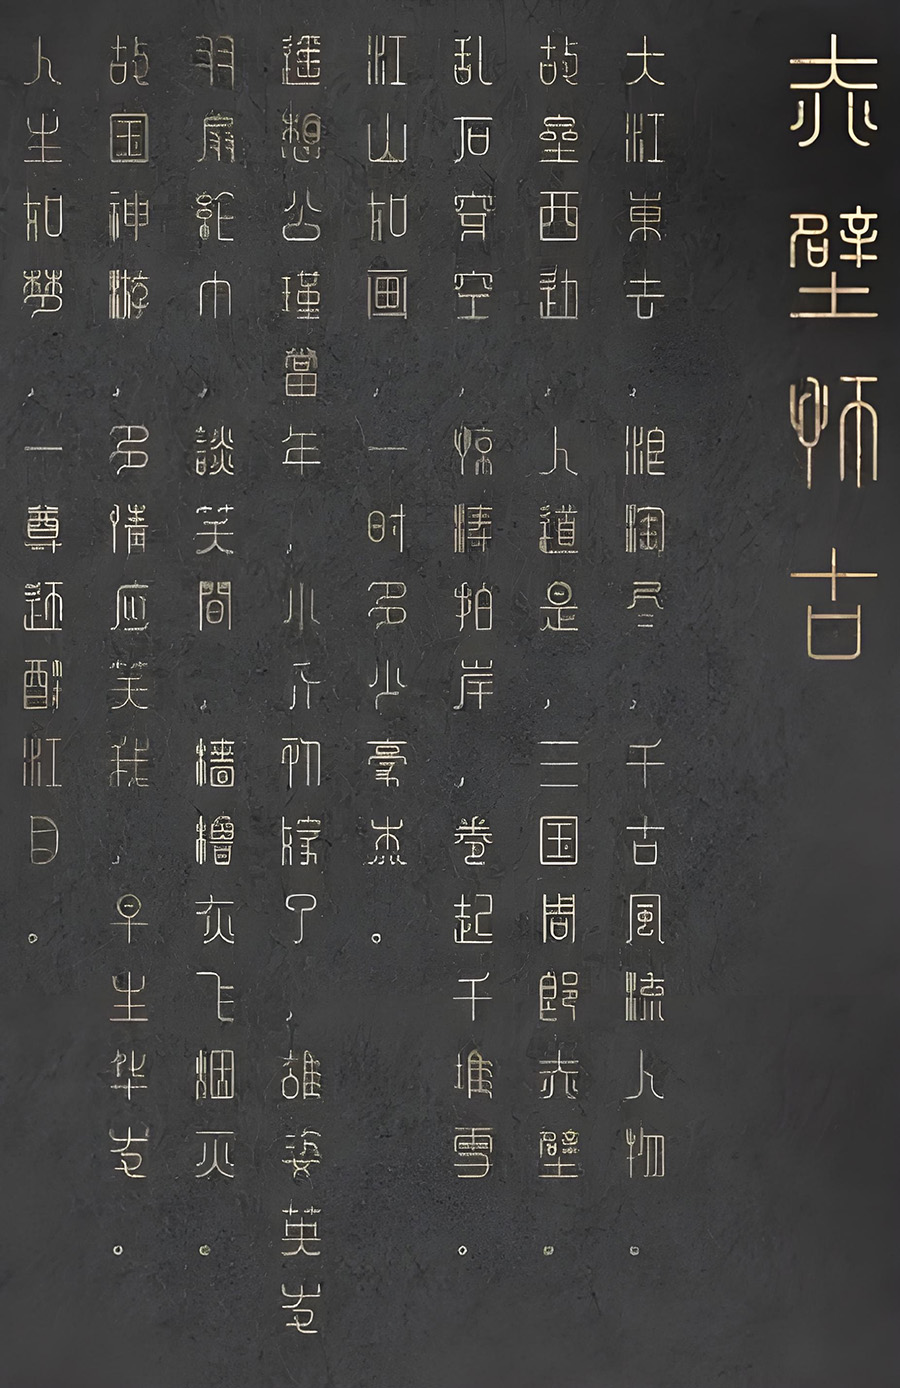 赤壁怀古
大江東去,浪淘尽,千古風流人物。
故垒西边,人道是,三国周郎赤壁。
乱石穿空,惊涛拍岸,卷起千堆雪。
江山如画,一时多少豪杰。
遥想公瑾當年,小乔初嫁了,雄姿英发
羽扇纶巾,談笑間,樯櫓灰飞烟灭。
故国神游,多情应笑我,早生华发。
人生如梦,一尊还酹江月。